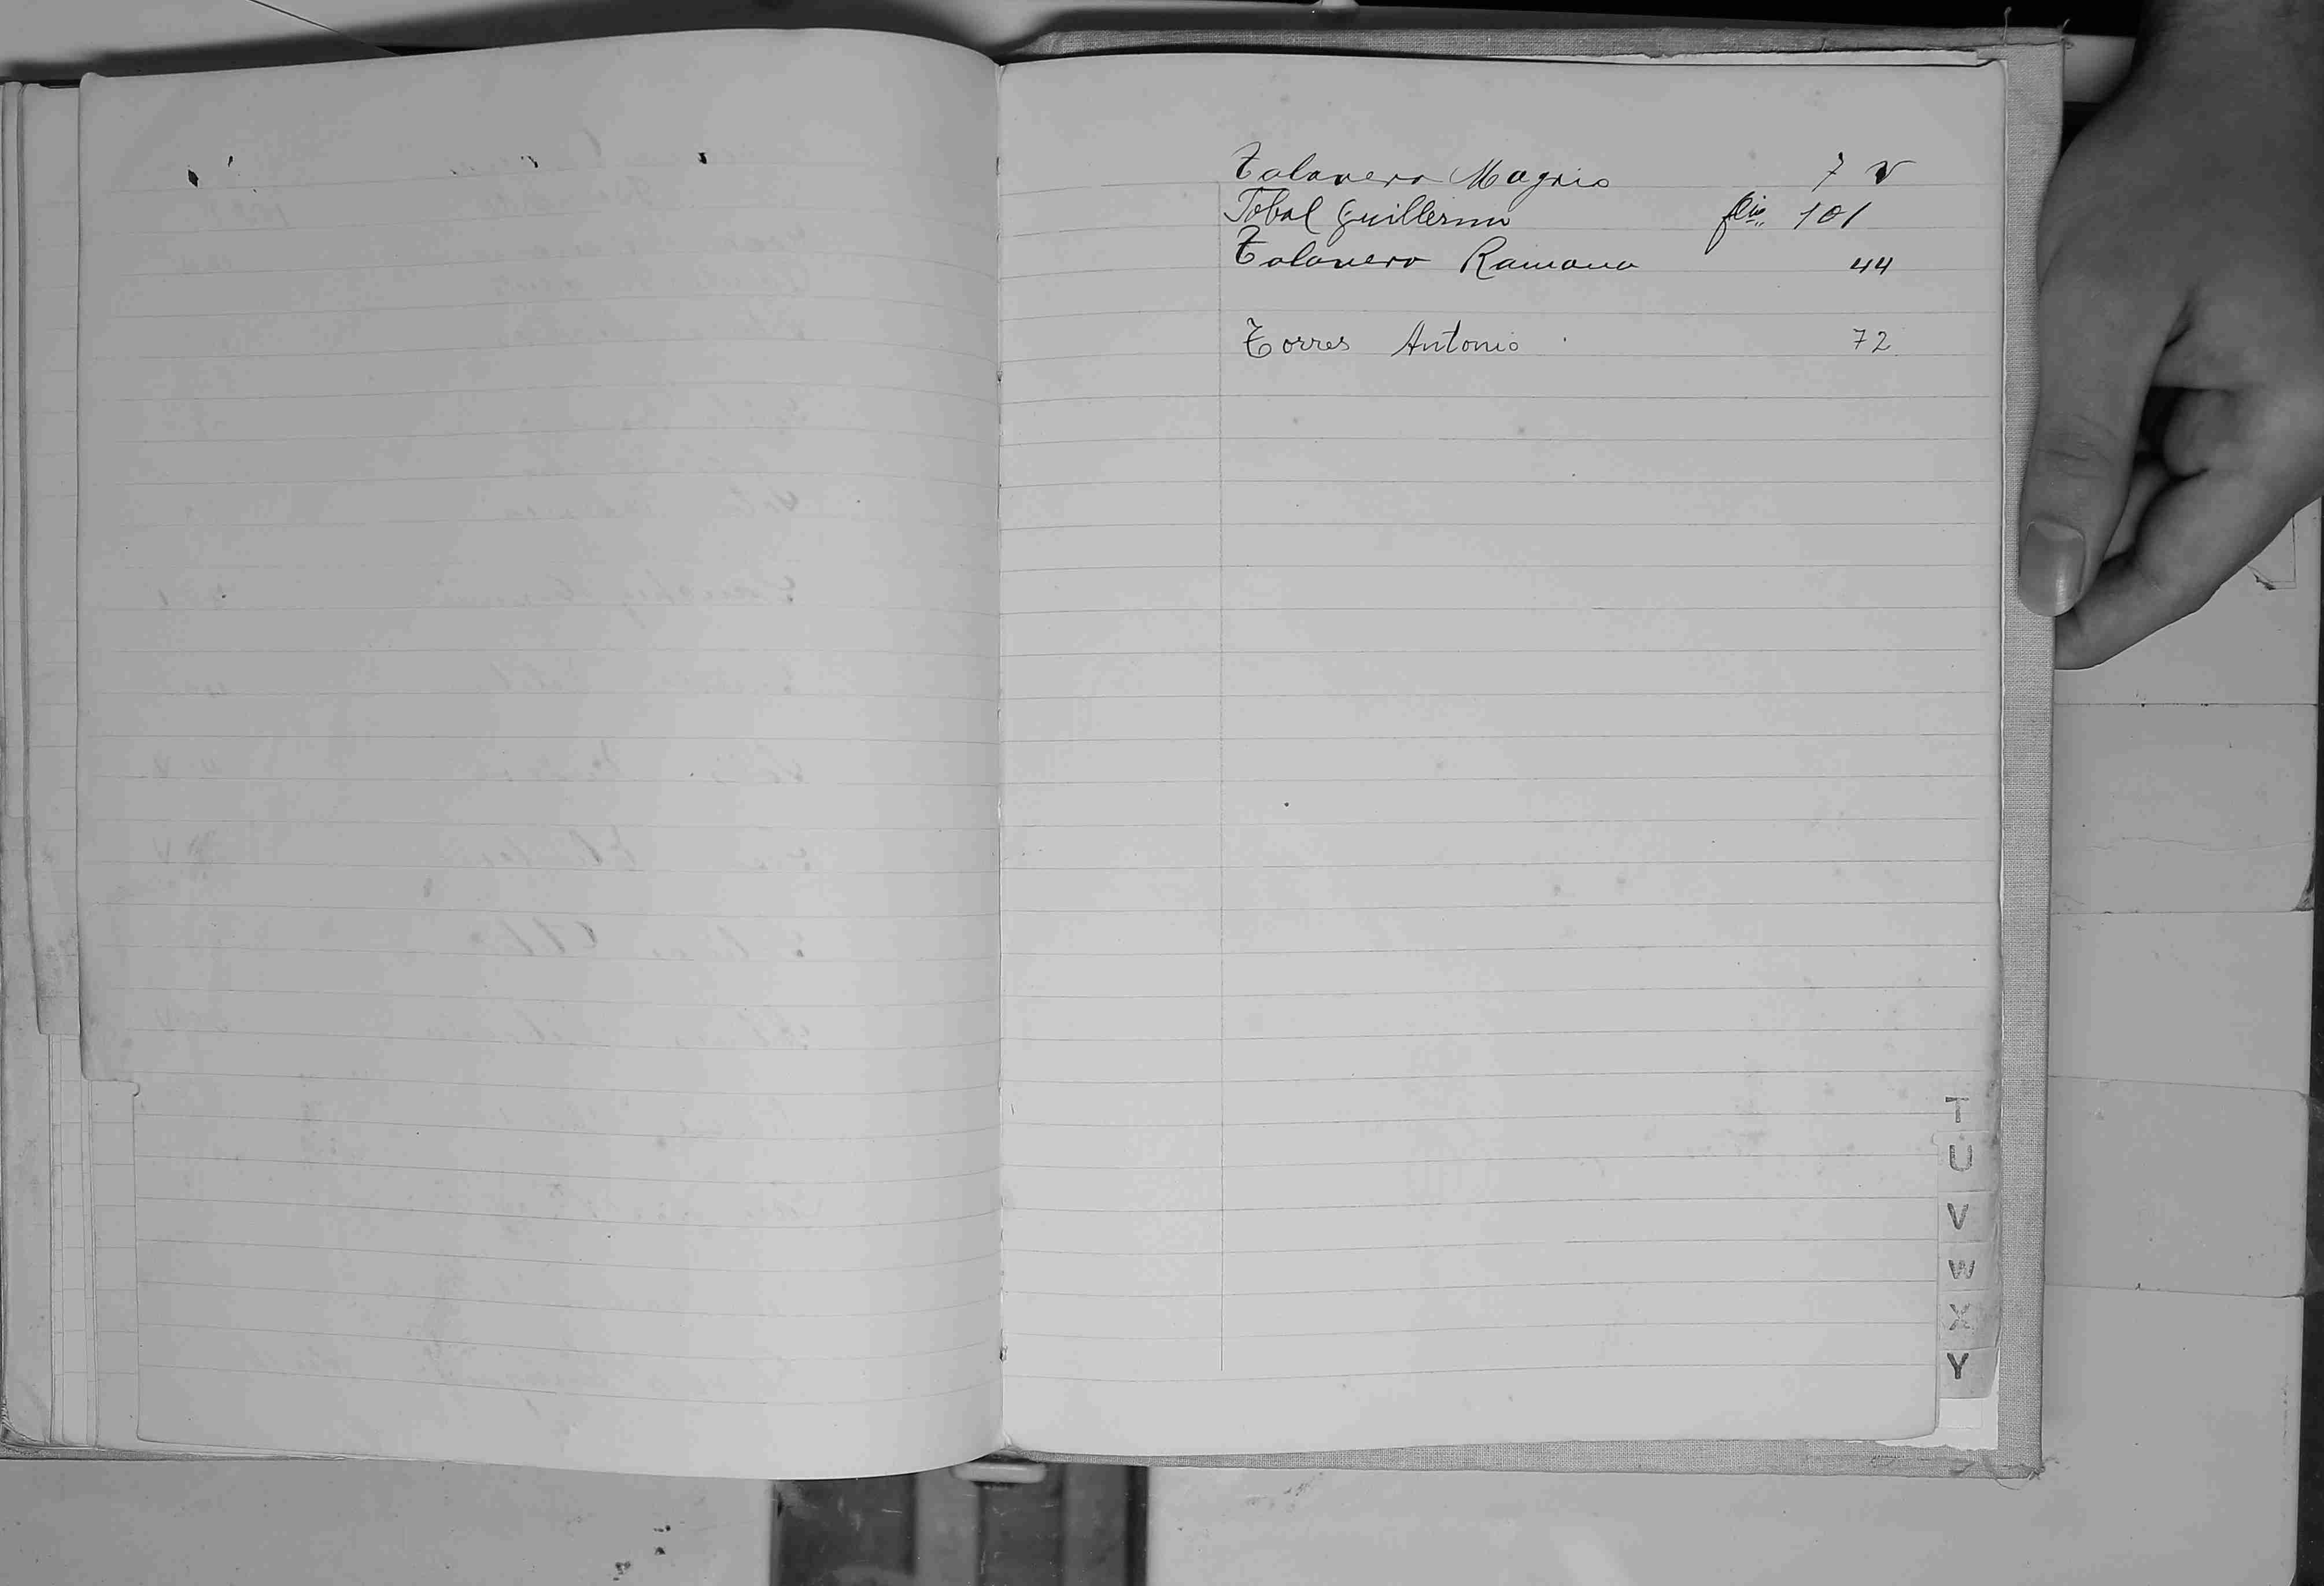 Talavera Magno 7 v
Tobal Guillermo flio. 101
Talavera Ramona 44
Torres Antonio 72
T
U
V
W
X
Y